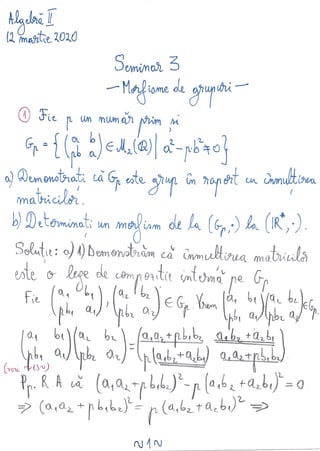 Algebră II
12 martie 2020
Seminar 3
- Morfisme de grupuri -
① Fie p un număr prim și
Gp = { ( a b ; pb a ) ∈ M₂(ℚ) | a² - pb² ≠ 0 }
a) Demonstrați că Gp este grup în raport cu înmulțirea
matricilor.
b) Determinați un morfism de la (Gp, ·) la (ℝ*, ·).
Soluție: a) 1) Demonstrăm că înmulțirea matricilor
este o lege de compoziție internă pe Gp
Fie ( a₁ b₁ ; pb₁ a₁ ), ( a₂ b₂ ; pb₂ a₂ ) ∈ Gp Vrem ( a₁ b₁ ; pb₁ a₁ )( a₂ b₂ ; pb₂ a₂ ) ∈ Gp.
( a₁ b₁ ; pb₁ a₁ )( a₂ b₂ ; pb₂ a₂ ) = ( a₁a₂ + pb₁b₂ a₁b₂ + a₂b₁ ; p(a₁b₂ + a₂b₁) a₁a₂ + pb₁b₂ )
Pp. R. A că (a₁a₂ + pb₁b₂)² - p(a₁b₂ + a₂b₁)² = 0
⇒ (a₁a₂ + pb₁b₂)² = p(a₁b₂ + a₂b₁)² ⇒
~1~